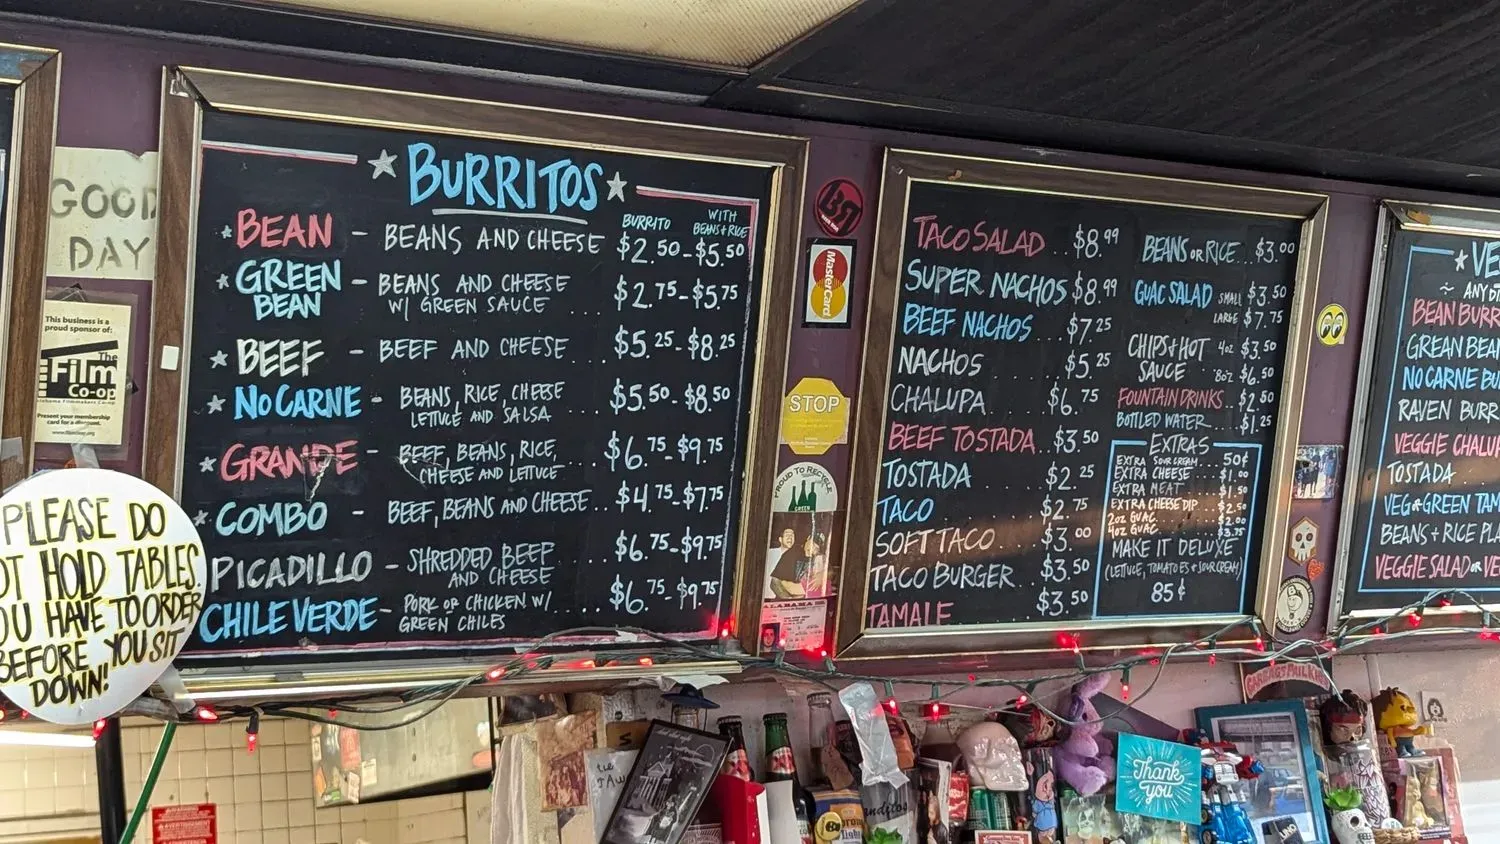 GOOD
DAY
This business is a
proud sponsor of:
The
Film
Co-op
Present your membership
card for a discount.
PLEASE DO
NOT HOLD TABLES.
YOU HAVE TO ORDER
BEFORE YOU SIT
DOWN!
BURRITOS
BURRITO WITH
BEANS & RICE
BEAN - BEANS AND CHEESE $2.50 - $5.50
GREEN
BEAN - BEANS AND CHEESE
W/ GREEN SAUCE ... $2.75 - $5.75
BEEF - BEEF AND CHEESE ... $5.25 - $8.25
NO CARNE - BEANS, RICE, CHEESE
LETTUCE AND SALSA ... $5.50 - $8.50
GRANDE - BEEF, BEANS, RICE,
CHEESE AND LETTUCE ... $6.75 - $9.75
COMBO - BEEF, BEANS AND CHEESE .. $4.75 - $7.75
PICADILLO - SHREDDED BEEF
AND CHEESE ... $6.75 - $9.75
CHILE VERDE - PORK OR CHICKEN W/
GREEN CHILES .... $6.75 - $9.75
MasterCard
STOP
PROUD TO RECYCLE
GREEN
ALABAMA
TACO SALAD .. $8.99
SUPER NACHOS $8.99
BEEF NACHOS .. $7.25
NACHOS ... $5.25
CHALUPA ... $6.75
BEEF TOSTADA.. $3.50
TOSTADA ... $2.25
TACO ... $2.75
SOFT TACO ... $3.00
TACO BURGER ... $3.50
TAMALE ... $3.50
BEANS OR RICE ... $3.00
GUAC SALAD SMALL $3.50
LARGE $7.75
CHIPS & HOT
SAUCE
4oz $3.50
8oz $6.50
FOUNTAIN DRINKS .. $2.50
BOTTLED WATER ... $1.25
EXTRAS
EXTRA SOUR CREAM ... 50¢
EXTRA CHEESE ... $1.00
EXTRA MEAT ... $1.50
EXTRA CHEESE DIP ... $2.50
2oz GUAC ... $2.00
4oz GUAC ... $3.75
MAKE IT DELUXE
(LETTUCE, TOMATOES & SOUR CREAM)
85¢
VE
~ ANY
BEAN BURR
GREAN BEA
NO CARNE BU
RAVEN BURR
VEGGIE CHALUP
TOSTADA
VEG & GREEN TAM
BEANS + RICE PLA
VEGGIE SALAD OR VE
GARBAGE PAIL KIDS
Thank
you
UNO